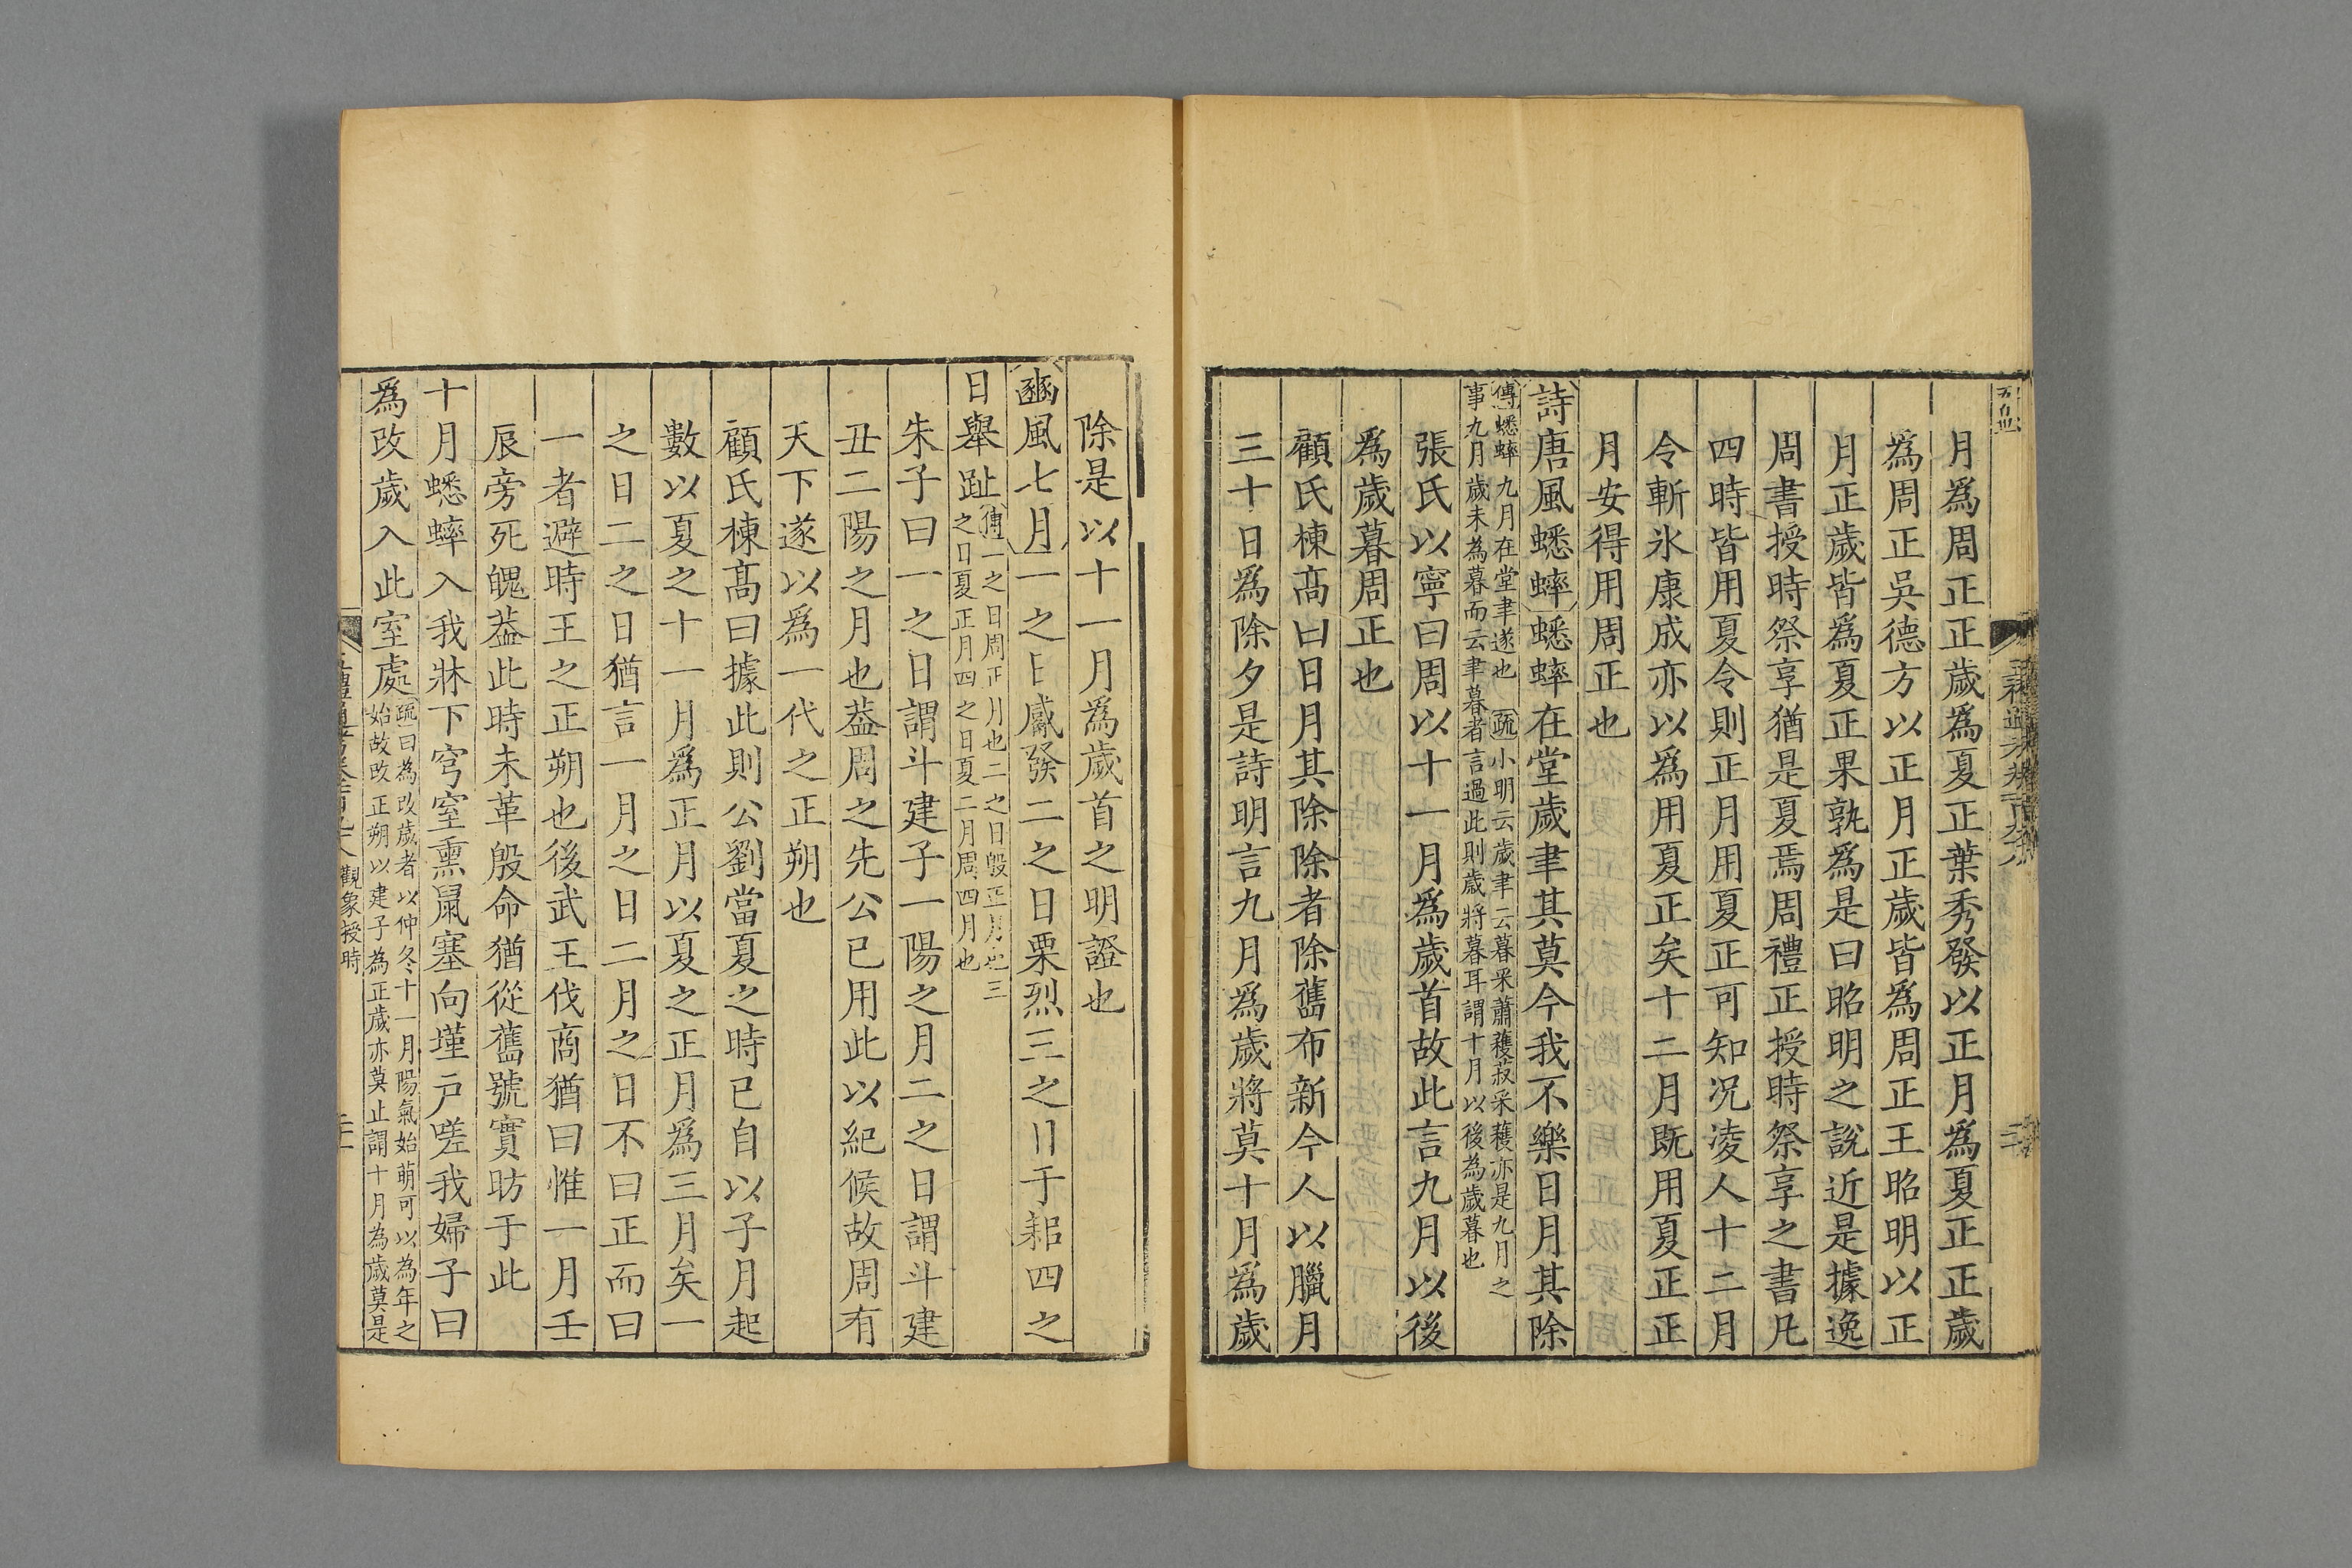 月爲周正正歲爲夏正葉秀發以正月爲夏正正歲
爲周正吳德方以正月正歲皆爲周正王昭明以正
月正歲皆爲夏正果孰爲是曰昭明之說近是據逸
周書授時祭享猶是夏焉周禮正授時祭享之書凡
四時皆用夏令則正月用夏正可知况凌人十二月
令斬氷康成亦以爲用夏正矣十二月既用夏正正
月安得用周正也
詩唐風蟋蟀蟋蟀在堂歲聿其莫今我不樂日月其除
傳蟋蟀九月在堂聿遂也 疏小明云歲聿云暮采蕭穫菽采穫亦是九月之
事九月歲未為暮而云聿暮者言過此則歲將暮耳謂十月以後為歲暮也
張氏以寧曰周以十一月爲歲首故此言九月以後
爲歲暮周正也
顧氏棟高曰日月其除除者除舊布新今人以臘月
三十日爲除夕是詩明言九月爲歲將莫十月爲歲
除是以十一月爲歲首之明證也
豳風七月一之日觱發二之日栗烈三之日于耜四之
日舉趾
傳一之日周正月也二之日殷正月也三
之日夏正月四之日夏二月周四月也
朱子曰一之日謂斗建子一陽之月二之日謂斗建
丑二陽之月也葢周之先公已用此以紀候故周有
天下遂以爲一代之正朔也
顧氏棟高曰據此則公劉當夏之時已自以子月起
數以夏之十一月爲正月以夏之正月爲三月矣一
之日二之日猶言一月之日二月之日不曰正而曰
一者避時王之正朔也後武王伐商猶曰惟一月壬
辰旁死魄葢此時未革殷命猶從舊號實昉于此
十月蟋蟀入我牀下穹窒熏鼠塞向墐戸嗟我婦子曰
爲改歲入此室處
疏曰為改歲者以仲冬十一月陽氣始萌可以為年之
始故改正朔以建子為正歲亦莫止謂十月為歲莫是
觀象授時